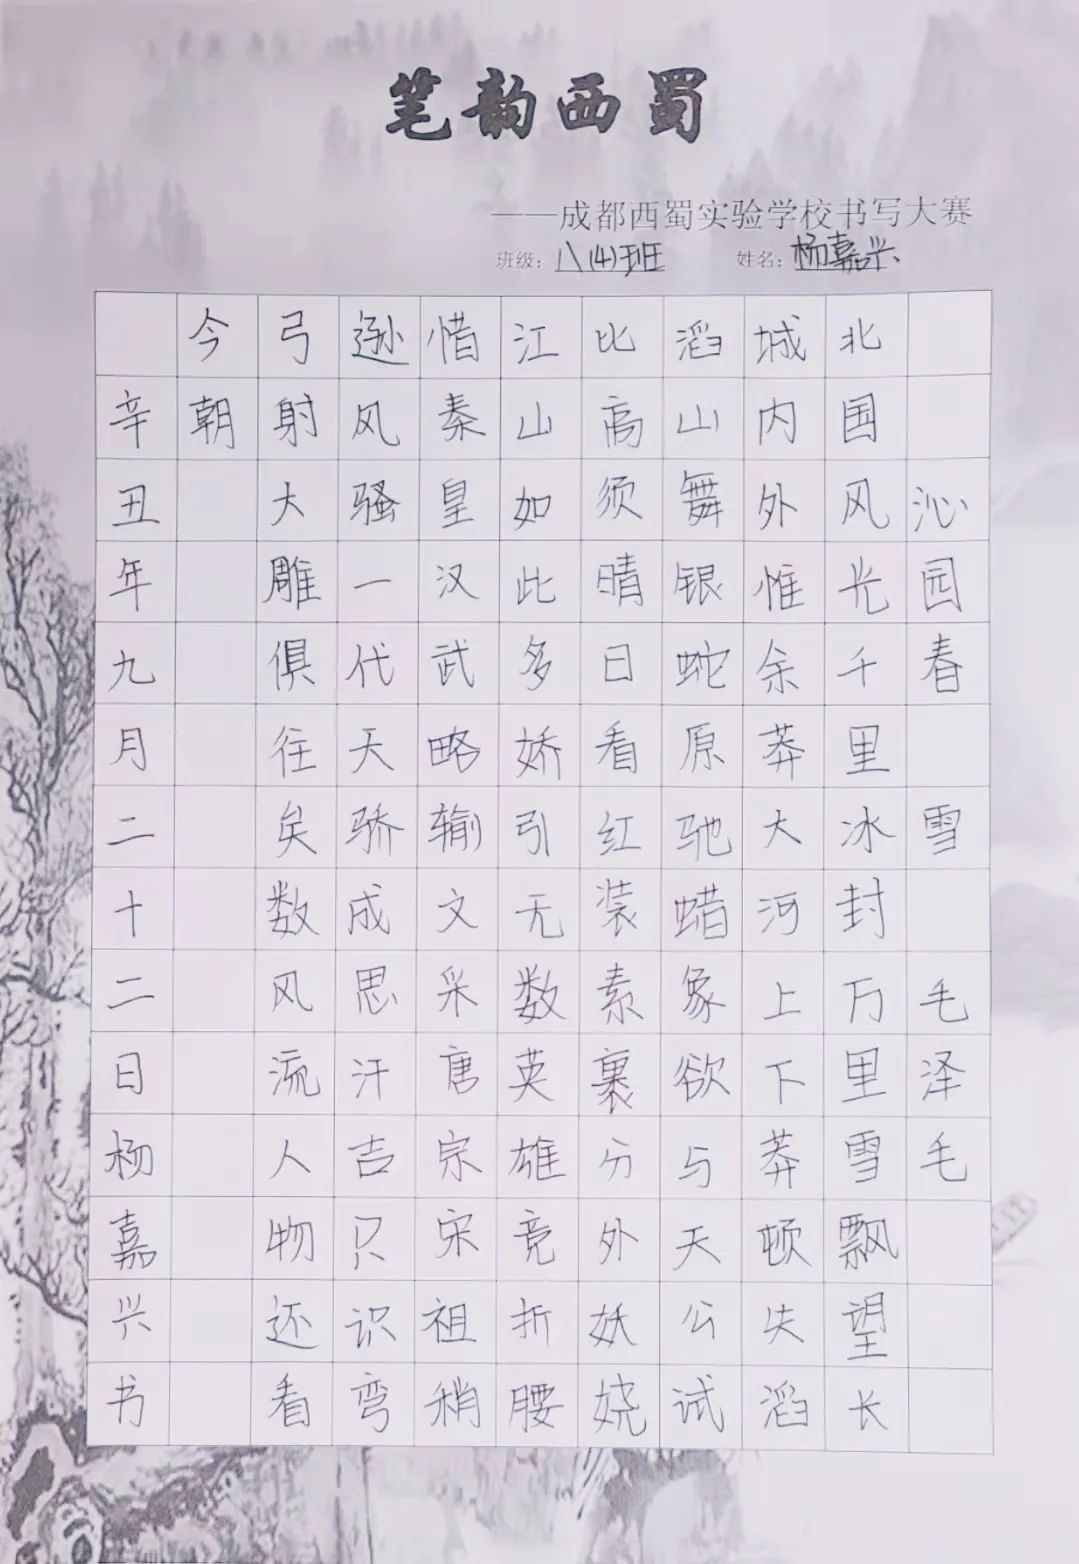 笔韵西蜀
——成都西蜀实验学校书写大赛
班级：八(4)班 姓名：杨嘉兴
沁园春 雪 毛泽毛
北国风光千里冰封万里雪飘望长
城内外惟余莽大河上下莽顿失滔
滔山舞银蛇原驰蜡象欲与天公试
比高须晴日看红装素裹分外妖娆
江山如此多娇引无数英雄竞折腰
惜秦皇汉武略输文采唐宗宋祖稍
逊风骚一代天骄成思汗吉只识弯
弓射大雕俱往矣数风流人物还看
今朝
辛丑年九月二十二日杨嘉兴书